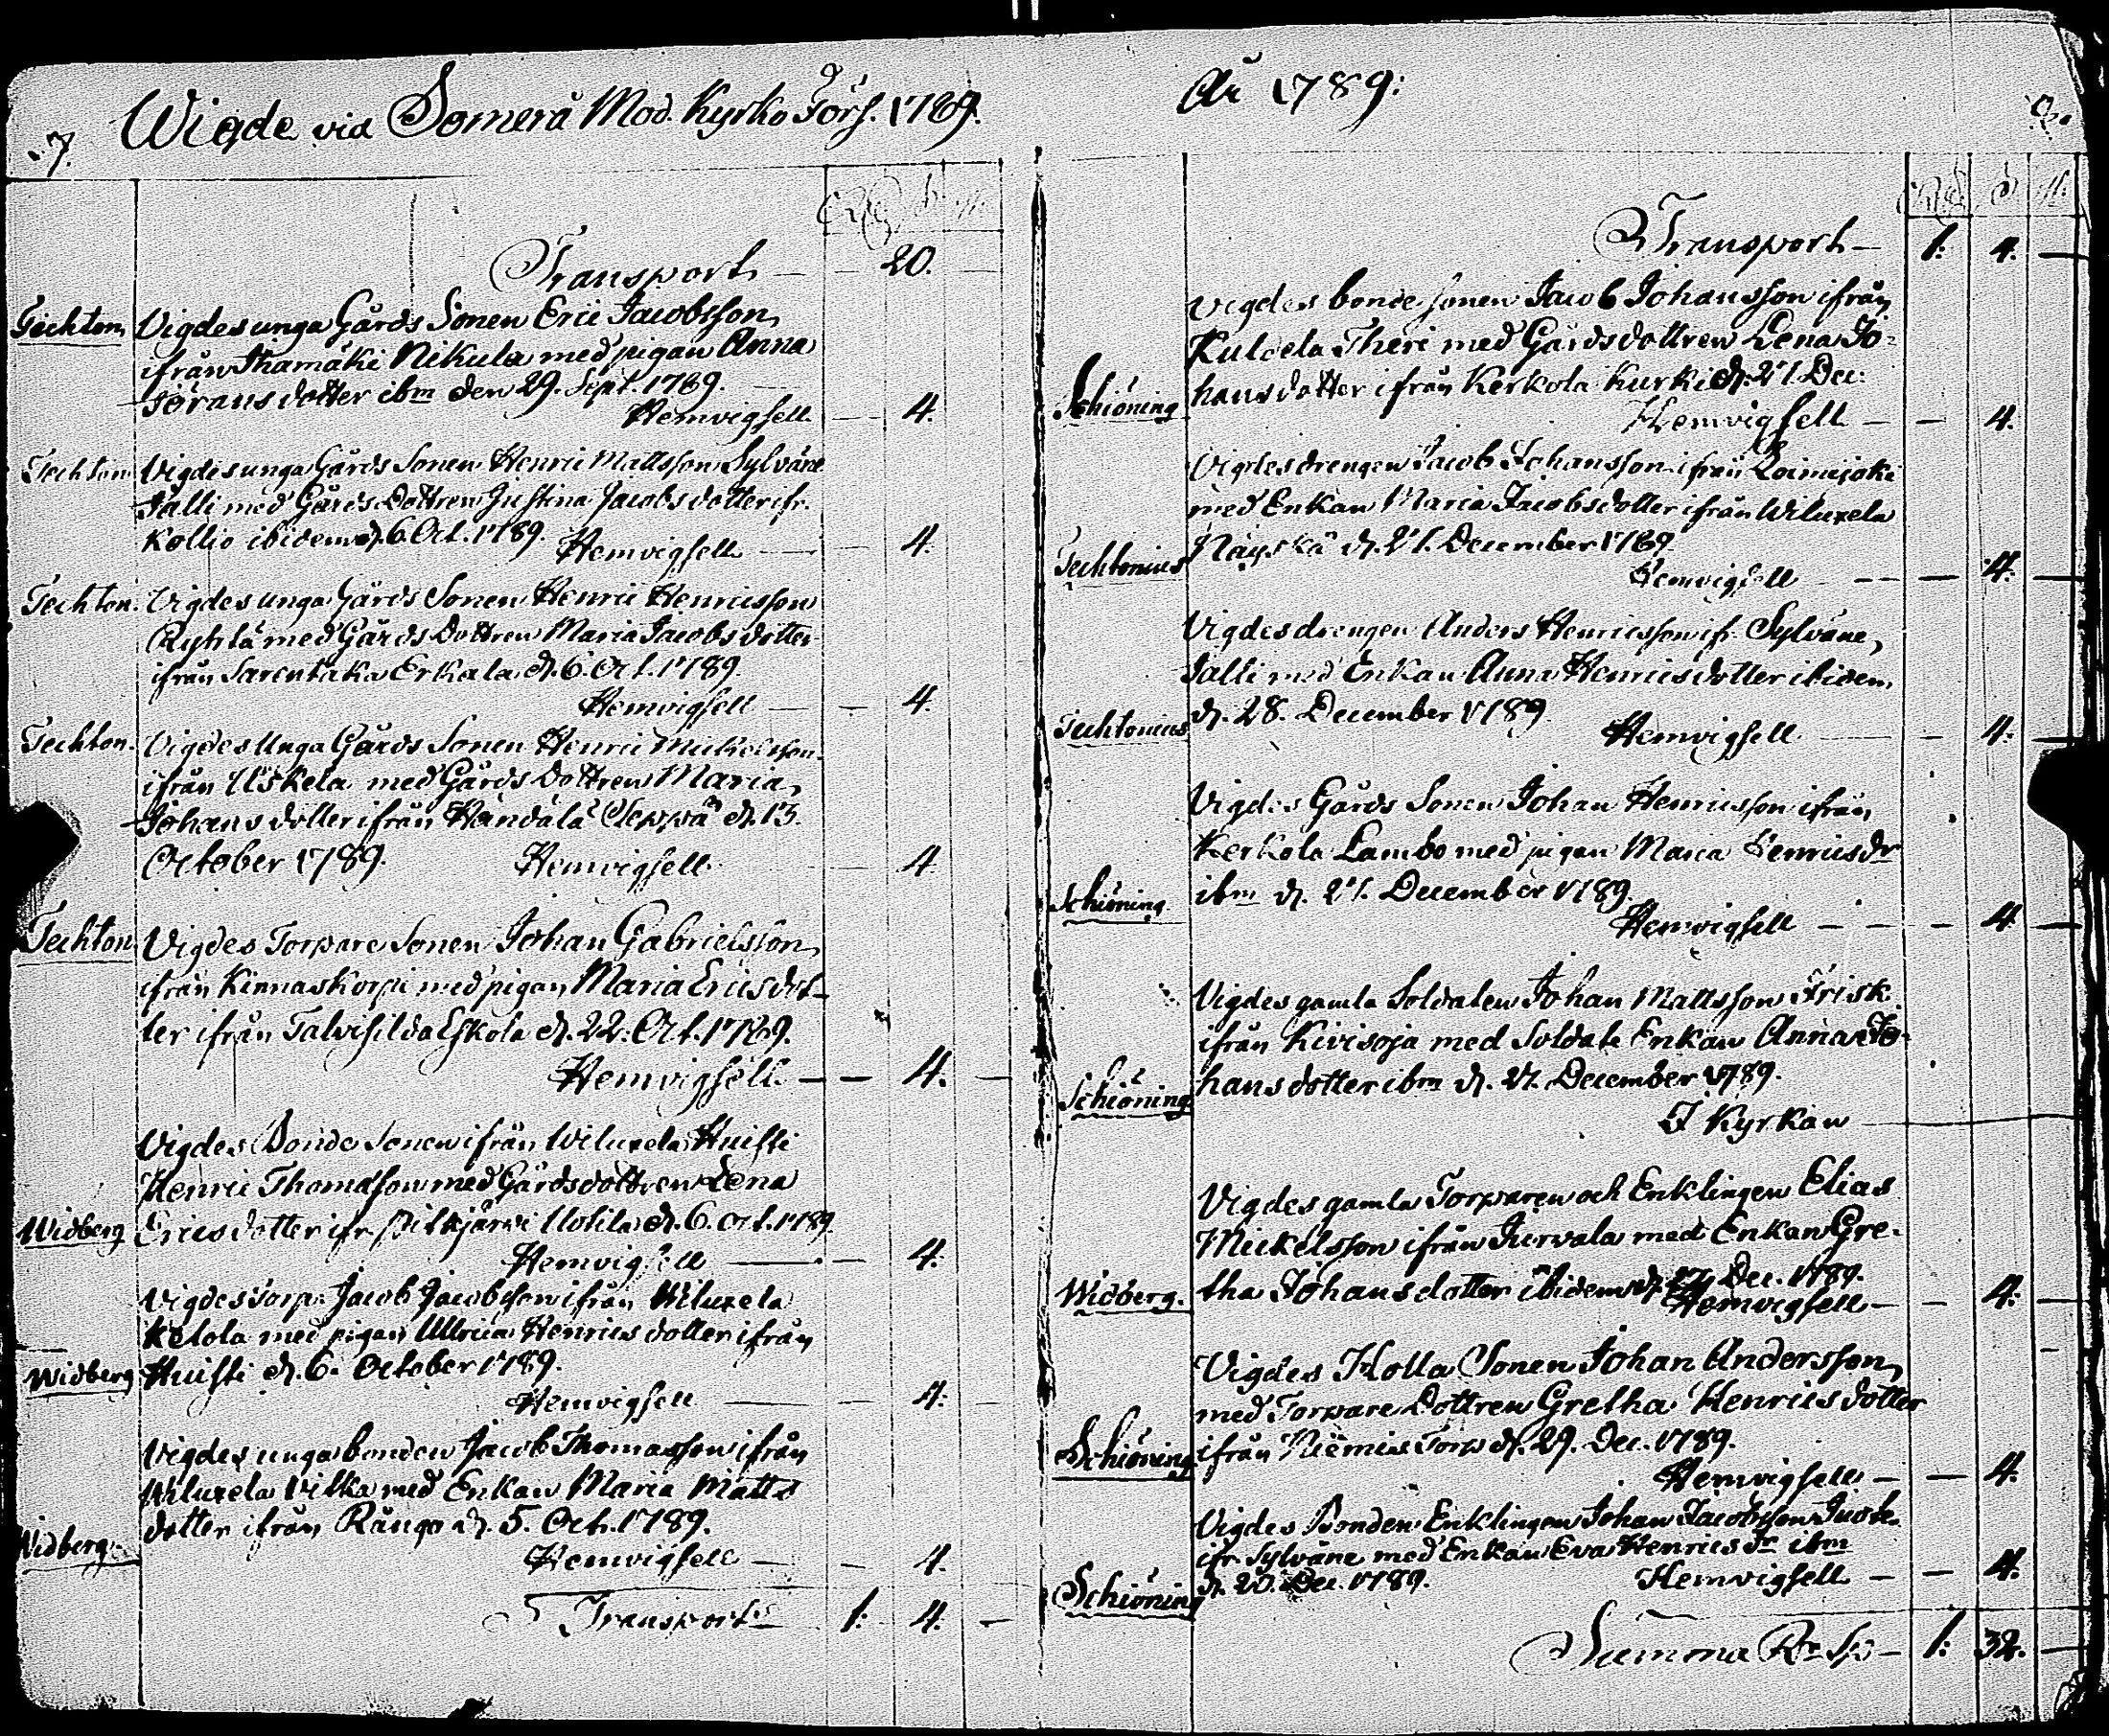 7. Wigde vid Somerå Mod. Kyrko Förs. 1789.
Transport — 20.
Techton. Vigdes unga Gårds Sonen Eric Jacobsson
ifrån Ihamäki Nikula med pigan Anna
Jöransdotter ibm den 29. Sept. 1789.
Hemvigsell — 4.
Techton. Vigdes unga Gårds Sonen Henric Mattsson Sylväne
Jalli med Gårds Dottren Justina Jacobsdotter ifr.
Kollio ibidem d. 6. Oct. 1789. Hemvigsell — 4.
Techton. Vigdes unga Gårds Sonen Henric Henricsson
Ryhtä med Gårds Dottren Maria Jacobs dotter
ifrån Sarentaka Erkala d. 6. Oct. 1789.
Hemvigsell — 4.
Techton. Vigdes Unga Gårds Sonen Henric Mickelsson
ifrån Uskela med Gårds Dottren Maria
Johans dotter ifrån Händälä Seppä d. 13.
October 1789. Hemvigsell — 4.
Techton. Vigdes Torpare Sonen Johan Gabrielsson
ifrån Kinnaskorpi med pigan Maria Ericsdot-
ter ifrån Talvisilda Eskola d. 22. Oct. 1789.
Hemvigsell — 4. —
Vigdes Bonde Sonen ifrån Wiluxela Huisti
Henric Thomasson med Gårdsdottren Lena
Widberg Ericsdotter ifr. Pitkjärwi Uotila d. 6. Oct. 1789.
Hemvigsell — 4.
Vigdes Torp. Jacob Jacobsson ifrån Wiluxela
Ketola med pigan Ullrica Henrics dotter ifrån
Widberg Huisti d. 6. October 1789.
Hemvigsell — 4.
Vigdes unga bonden Jacob Thomasson ifrån
Wiluxela Vilka med Enkan Maria Matts
Widberg dotter ifrån Rångo d. 5. Oct. 1789.
Hemvigsell — 4.
Transport 1: 4. —
År 1789: 8.
Transport — 1: 4. —
Vigdes bonde sonen Jacob Johansson ifrån
Kulcela Theri med Gårdsdottren Lena Jo-
Schiöning hansdotter ifrån Kerkola Kurki d. 27. Dec:
Hemvigsell — 4.
Vigdes drengen Jacob Johansson ifrån Loimijoki
med Enkan Maria Jacobsdotter ifrån Wiluxela
Techtonius Näyskä d. 21. December 1789.
Hemvigsell — 4. —
Vigdes drengen Anders Henricsson if. Sylväne,
Jalli med Enkan Anna Henricsdotter ibidem
Techtonius d. 28. December 1789.
Hemvigsell — 4. —
Vigdes Gårds Sonen Johan Henricsson ifrån
Kerkola Lambo med pigan Maria Henricsdr
Schiöning ibm d. 27. December 1789.
Hemvigsell — 4 —
Vigdes gamla Soldaten Johan Mattsson Frisk
ifrån Kivisoja med Soldate Enkan Anna Jo-
Schiöning hansdotter ibm d. 27. December 1789.
I Kyrkan —
Vigdes gamla Torparen och Enklingen Elias
Mickelsson ifrån Jurvala med Enkan Gre-
Widberg. tha Johansdotter ibidem d. Dec. 1789.
Hemvigsell — 4: —
Vigdes Holla Sonen Johan Andersson
med Torpare Dottren Gretha Henricsdotter
Schiöning ifrån Niemis Torp d. 29. Dec. 1789.
Hemvigsell — 4. —
Vigdes Bonden Enklingen Johan Jacobsson
ifr. Sylväne med Enkan Eva Henricsdr ibm
Schiöning d. 20. Dec. 1789. Hemvigsell — 4. —
Summa Rr Sp — 1: 32. —